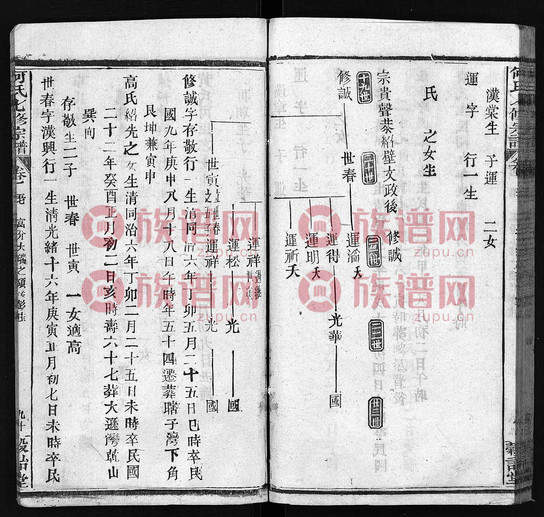 漢棠生 子運 二女
運 字 行一生
氏 之女生
宗貴聲恭紹璧文政後 修誠
十九世
二十世
二十一世
二十二世
二十三世
修誠
世春
運滔夭
運得
光華
國
運明夭
運祈夭
世寅
運祥
運松
光
國
運祥
光
國
修誠字存敬行一生清同治六年丁卯五月二十五日巳時卒民
國九年庚申八月十八日午時年五十四遷葬瞎子灣下角
艮坤兼寅申
高氏紹先之女生清同治六年丁卯二月二十五日未時卒民國
二十二年癸酉正月初二日亥時壽六十七葬大遜灣乾山
巽向
存敬生二子 世春 世寅 一女適高
世春字漢興行一生清光緒十六年庚寅正月初七日未時卒民
何氏七修宗譜
卷
族谱网
www.zupu.cn